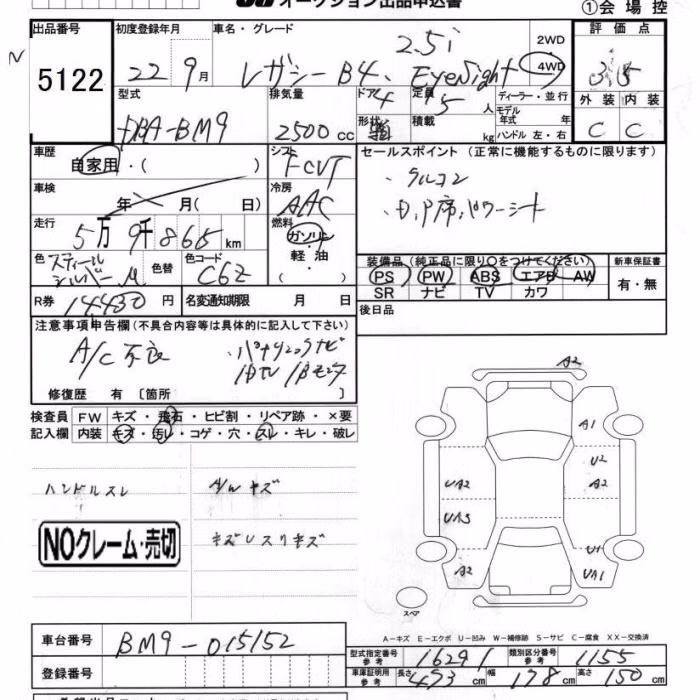 オークション出品申込書
①会場控
出品番号 初度登録年月 車名・グレード 2WD 評価点
N 5122 22 9月 レガシーB4、2.5i EyeSight 4WD 3.5
型式 排気量 ドア 定員 ディーラー・並行 外装 内装
DBA-BM9 2500cc 4 5人 モデル年式 年 C C
形状 箱 積載 kg ハンドル 左・右
車歴 シフト セールスポイント (正常に機能するものに限ります)
自家用・( ) FCVT ・クルコン
車検 冷房 ・D,P席,パワーシート
年 月( 日) AAC
走行 燃料
5万9千865km ガソリン・軽油
色 スティールシルバーM 色替 色コード C6Z ・( )
装備品(純正品に限り〇をつけてください) 新車保証書
PS PW ABS エアB AW 有・無
SR ナビ TV カワ
R券 14430円 名変通知期限 月 日 後日品
注意事項申告欄(不具合内容等は具体的に記入して下さい)
A/C不良 ・パナソニックナビ
修復歴 有 [箇所 ]
検査員 FW キズ・飛石・ヒビ割・リペア跡・×要
記入欄 内装 キズ・汚レ・コゲ・穴・スレ・キレ・破レ
A2
A1
U2
UA2 A2
UA3
U1
A2 UA1
スペア
ハンドルスレ A/W キズ
NOクレーム・売切 キズレスリキズ
A-キズ E-エクボ U-凹み W-補修跡 S-サビ C-腐食 XX-交換済
車台番号 BM9-015152
型式指定番号 参考 16291 類別区分番号 参考 1155
登録番号
車庫証明用 参考 長さ 473cm 幅 178cm 高さ 150cm